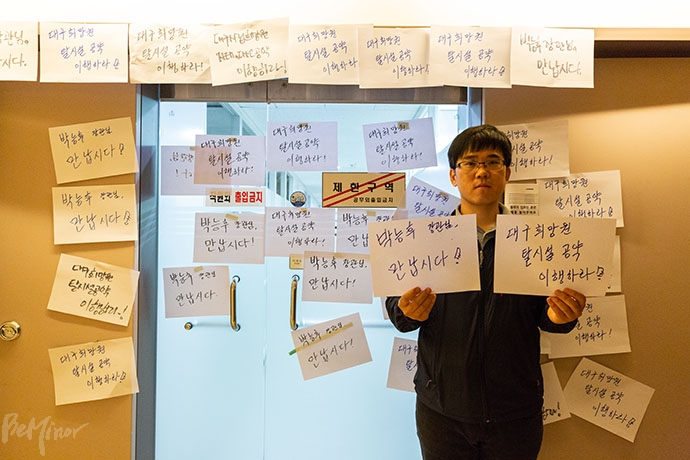 장관님,
시다.
대구희망원
탈시설 공약
이행하라!
대구희망원
탈시설 공약
이행하라!
대구시립희망원
탈시설 공약
이행하라!
대구희망원
탈시설 공약
이행하라!
대구희망원
탈시설 공약
이행하라!
대구희망원
탈시설 공약
이행하라!
박능후 장관님,
만납시다.
박능후 장관님,
만납시다!
대구희망원
탈시설 공약
이행하라!
대구희망원
탈시설 공약
이행하라!
대구희망원
탈시설 공약
이행하라!
출입금지
제한구역
공무외출입금지
출입금지
박능후 장관님,
만납시다!
박능후 장관님,
만납시다!
대구희망원
탈시설 공약
이행하라!
박능후
만납
박능후 장관님,
만납시다!
대구희망원
탈시설 공약
이행하라!
박능후 장관님,
만납시다.
박능후 장관님,
만납시다!
대구희망원
탈시설공약
이행하라!
박능후 장관님,
만납시다!
대구희망원
탈시설 공약
이행하라!
대구희망원
탈시설 공약
이행하라!
대구희망원
탈시설 공약
이행하라!
BeMinor